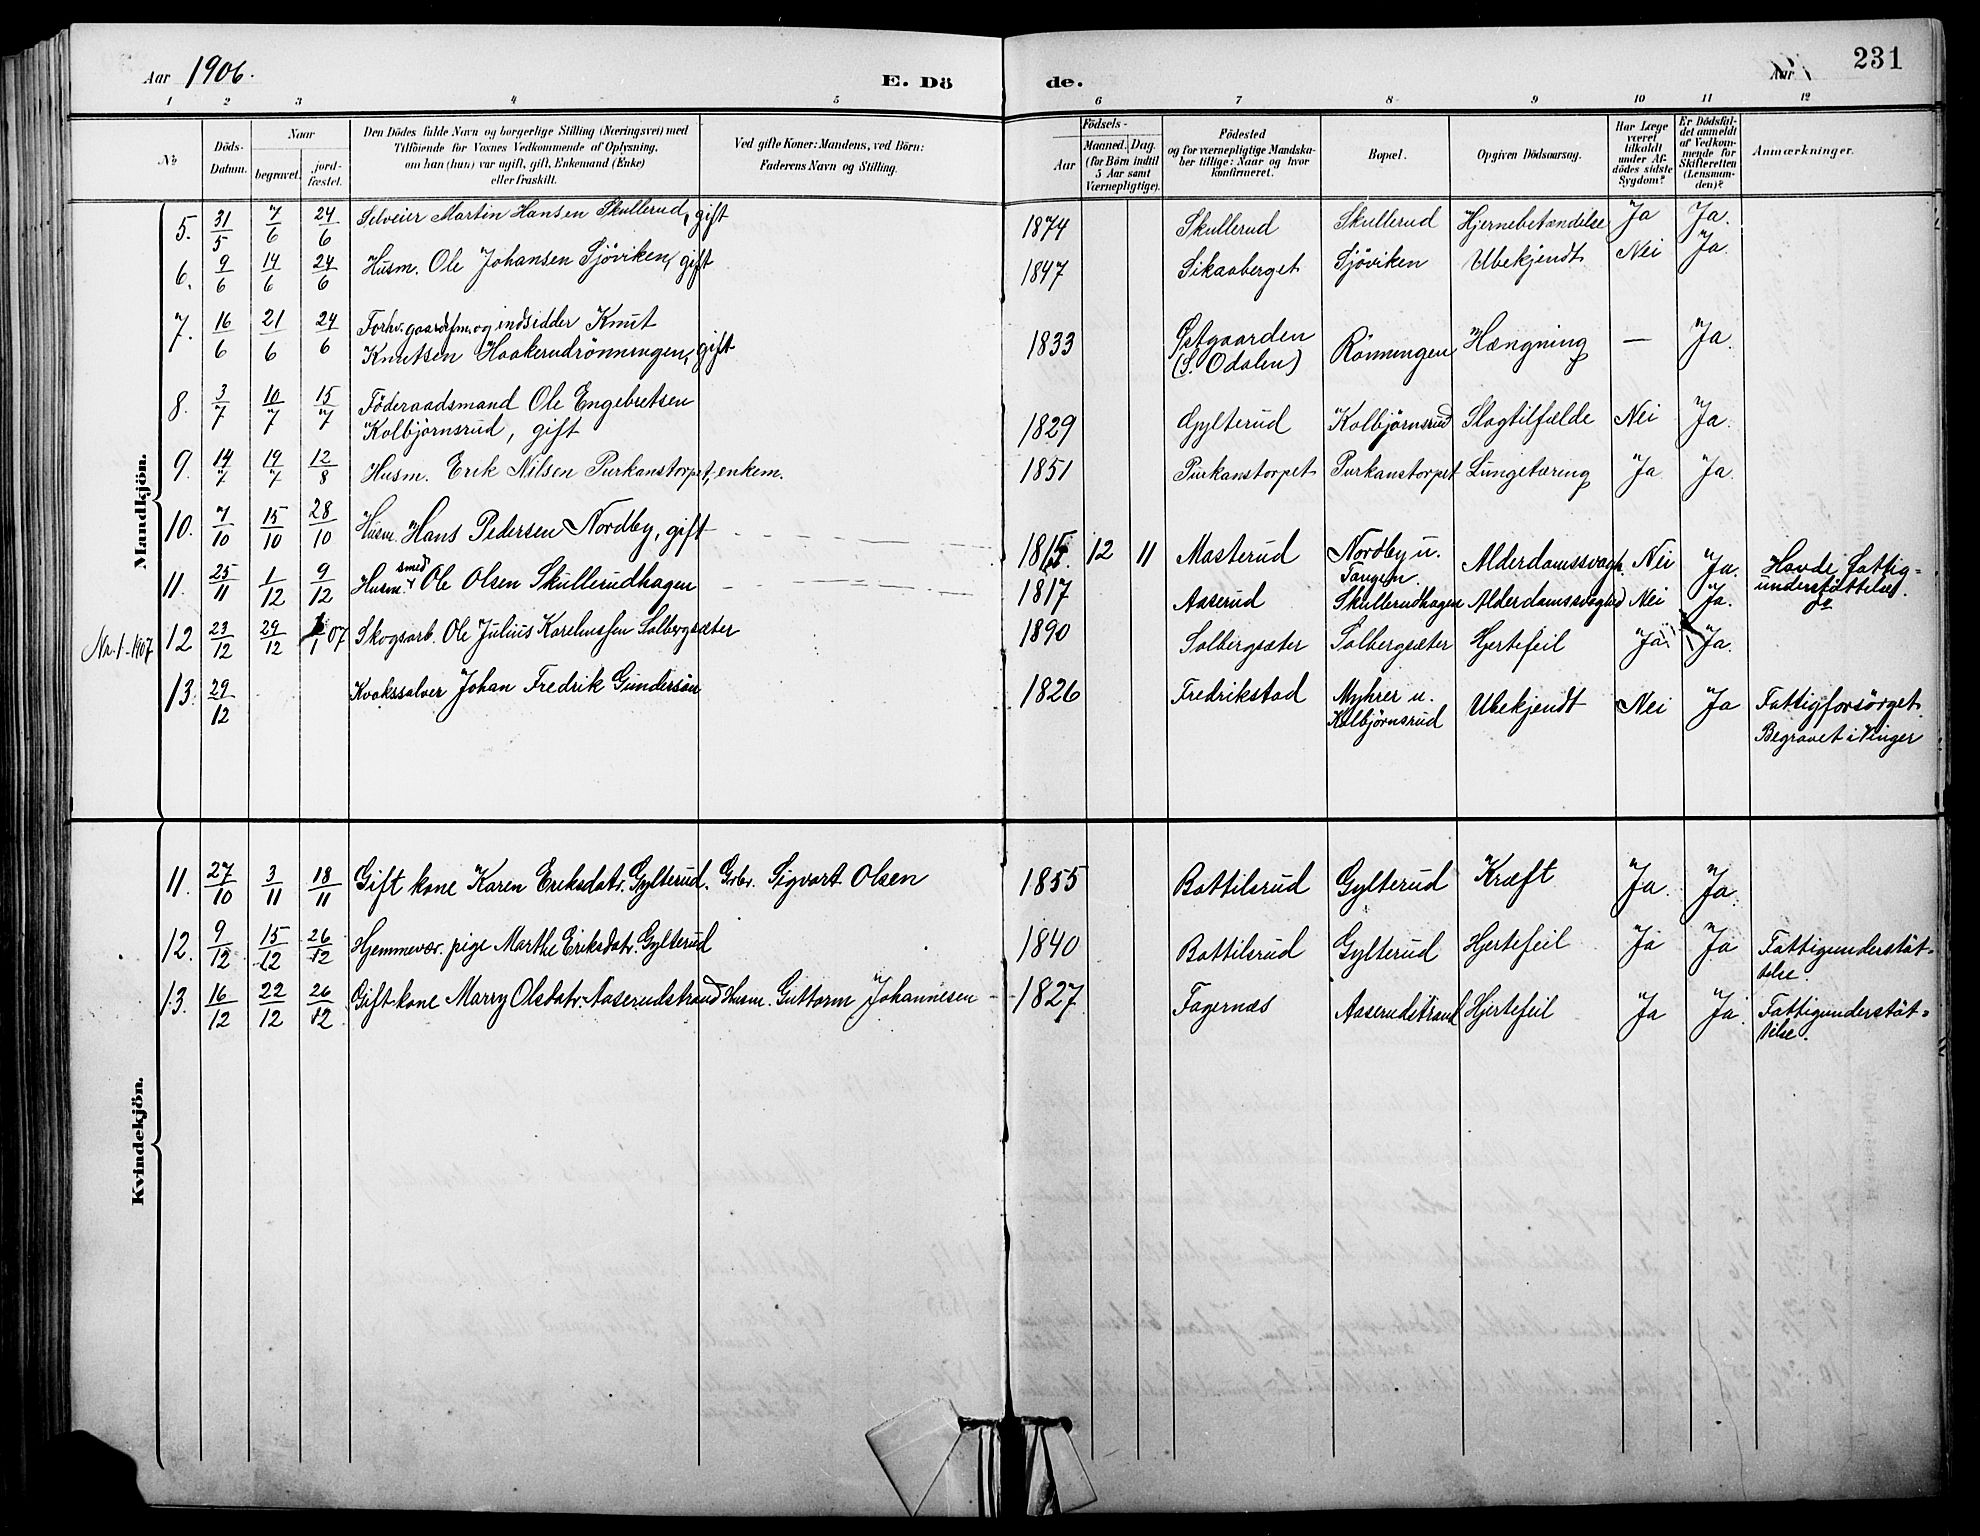 Aar 1906.
E. Dö
de.
Aar
231
1 2 3 4 5 6 7 8 9 10 11 12
No
Döds-Datum.
Naar
begravet.
jord-fæstet.
Den Dödes fulde Navn og borgerlige Stilling (Næringsvei) med
Tilföiende for Voxnes Vedkommende af Oplysning,
om han (hun) var ugift, gift, Enkemand (Enke)
eller fraskilt.
Ved gifte Koner: Mandens, ved Börn:
Faderens Navn og Stilling.
Födsels-
Aar
Maaned. Dag.
(for Börn indtil
5 Aar samt
Værnepligtige).
Födested
og for værnepligtige Mandska-
ber tillige: Naar og hvor
konfirmeret.
Bopæl.
Opgiven Dödsaarsag.
Har Læge
været
tilkaldt
under Af-
dödes sidste
Sygdom?
Er Dödsfal-
det anmeldt
af Vedkom-
mende for
Skifteretten
(Lensman-
den)?
Anmærkninger.
Mandkjön.
5. 31/5 7/6 24/6 Selveier Martin Hansen Skullerud, gift 1874 Skullerud Skullerud Hjernebetændelse Ja Ja.
6. 9/6 14/6 24/6 Husm. Ole Johansen Sjöviken, gift 1847 Sikaaberget Sjöviken Ubekjendt Nei Ja.
7. 16/6 21/6 24/6 Forhv. gaardbrm. og indsidder Knut
Knutsen Haakerudrönningen, gift 1833 Östgaarden
(S. Odalen) Rönningen Hængning — Ja.
8. 3/7 10/7 15/7 Föderaadsmand Ole Engebretsen
Kolbjörnsrud, gift 1829 Gylterud Kolbjörnsrud Slagtilfælde Nei Ja.
9. 14/7 19/7 12/8 Husm. Erik Nilsen Purkanstorpet, enkem. 1851 Purkanstorpet Purkanstorpet Lungetæring Ja Ja.
10. 7/10 15/10 28/10 Husm. Hans Pedersen Nordby, gift 1815. 12 11 Masterud Nordby u.
Tangen. Alderdomssvagh. Nei Ja. Havde fattig-
understøttelse.
11. 25/11 1/12 9/12 Husm. smed Ole Olsen Skullerudhagen 1817 Aaserud Skullerudhagen Alderdomssvaghed Nei Ja. do
Nr. 1-1907 12 23/12 29/12 /1 07 Skogsarb. Ole Julius Kareliussen Solbergsæter 1890 Solbergsæter Solbergsæter Hjertefeil Ja Ja.
13. 29/12 Kvaksalver Johan Fredrik Gundersön 1826 Fredrikstad Myhrer u.
Kolbjörnsrud Ubekjendt Nei Ja Fattigforsörget.
Begravet i Vinger
Kvindekjön.
11. 27/10 3/11 18/11 Gift kone Karen Eriksdatr. Gylterud. Grbr. Sigvart Olsen 1855 Bottilsrud Gylterud Kræft Ja. Ja.
12. 9/12 15/12 26/12 Hjemmevær. pige Marthe Eriksdatr. Gylterud 1840 Bottilsrud Gylterud Hjertefeil Ja Ja Fattigunderstöt-
telse.
13. 16/12 22/12 26/12 Gift kone Marry Olsdatr. Aaserudstrand Husm. Guttorm Johannesen 1827 Fagernæs Aaserudstrand Hjertefeil Ja Ja. Fattigunderstöt-
telse.